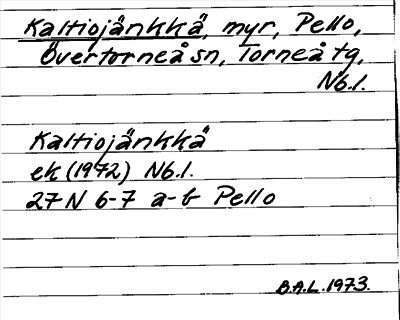 Kaltiojänkkä, myr, Pello,
Övertorneå sn, Torneå tg,
Nb.l.
Kaltiojänkkä
ek (1972) Nb.l.
27 N 6-7 a-b Pello
B.A.L. 1973.